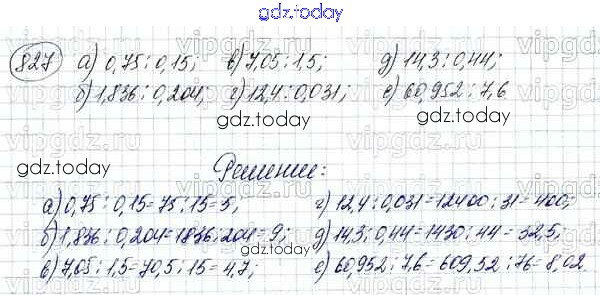 gdz.today
827 а) 0,75 : 0,15; в) 7,05 : 1,5; д) 14,3 : 0,44;
б) 1,836 : 0,204; г) 12,4 : 0,031; е) 60,952 : 7,6
gdz.today
gdz.today
gdz.today
Решение:
а) 0,75 : 0,15 = 75 : 15 = 5; г) 12,4 : 0,031 = 12400 : 31 = 400;
б) 1,836 : 0,204 = 1836 : 204 = 9; д) 14,3 : 0,44 = 1430 : 44 = 32,5;
в) 7,05 : 1,5 = 70,5 : 15 = 4,7; е) 60,952 : 7,6 = 609,52 : 76 = 8,02
gdz.today
gdz.today